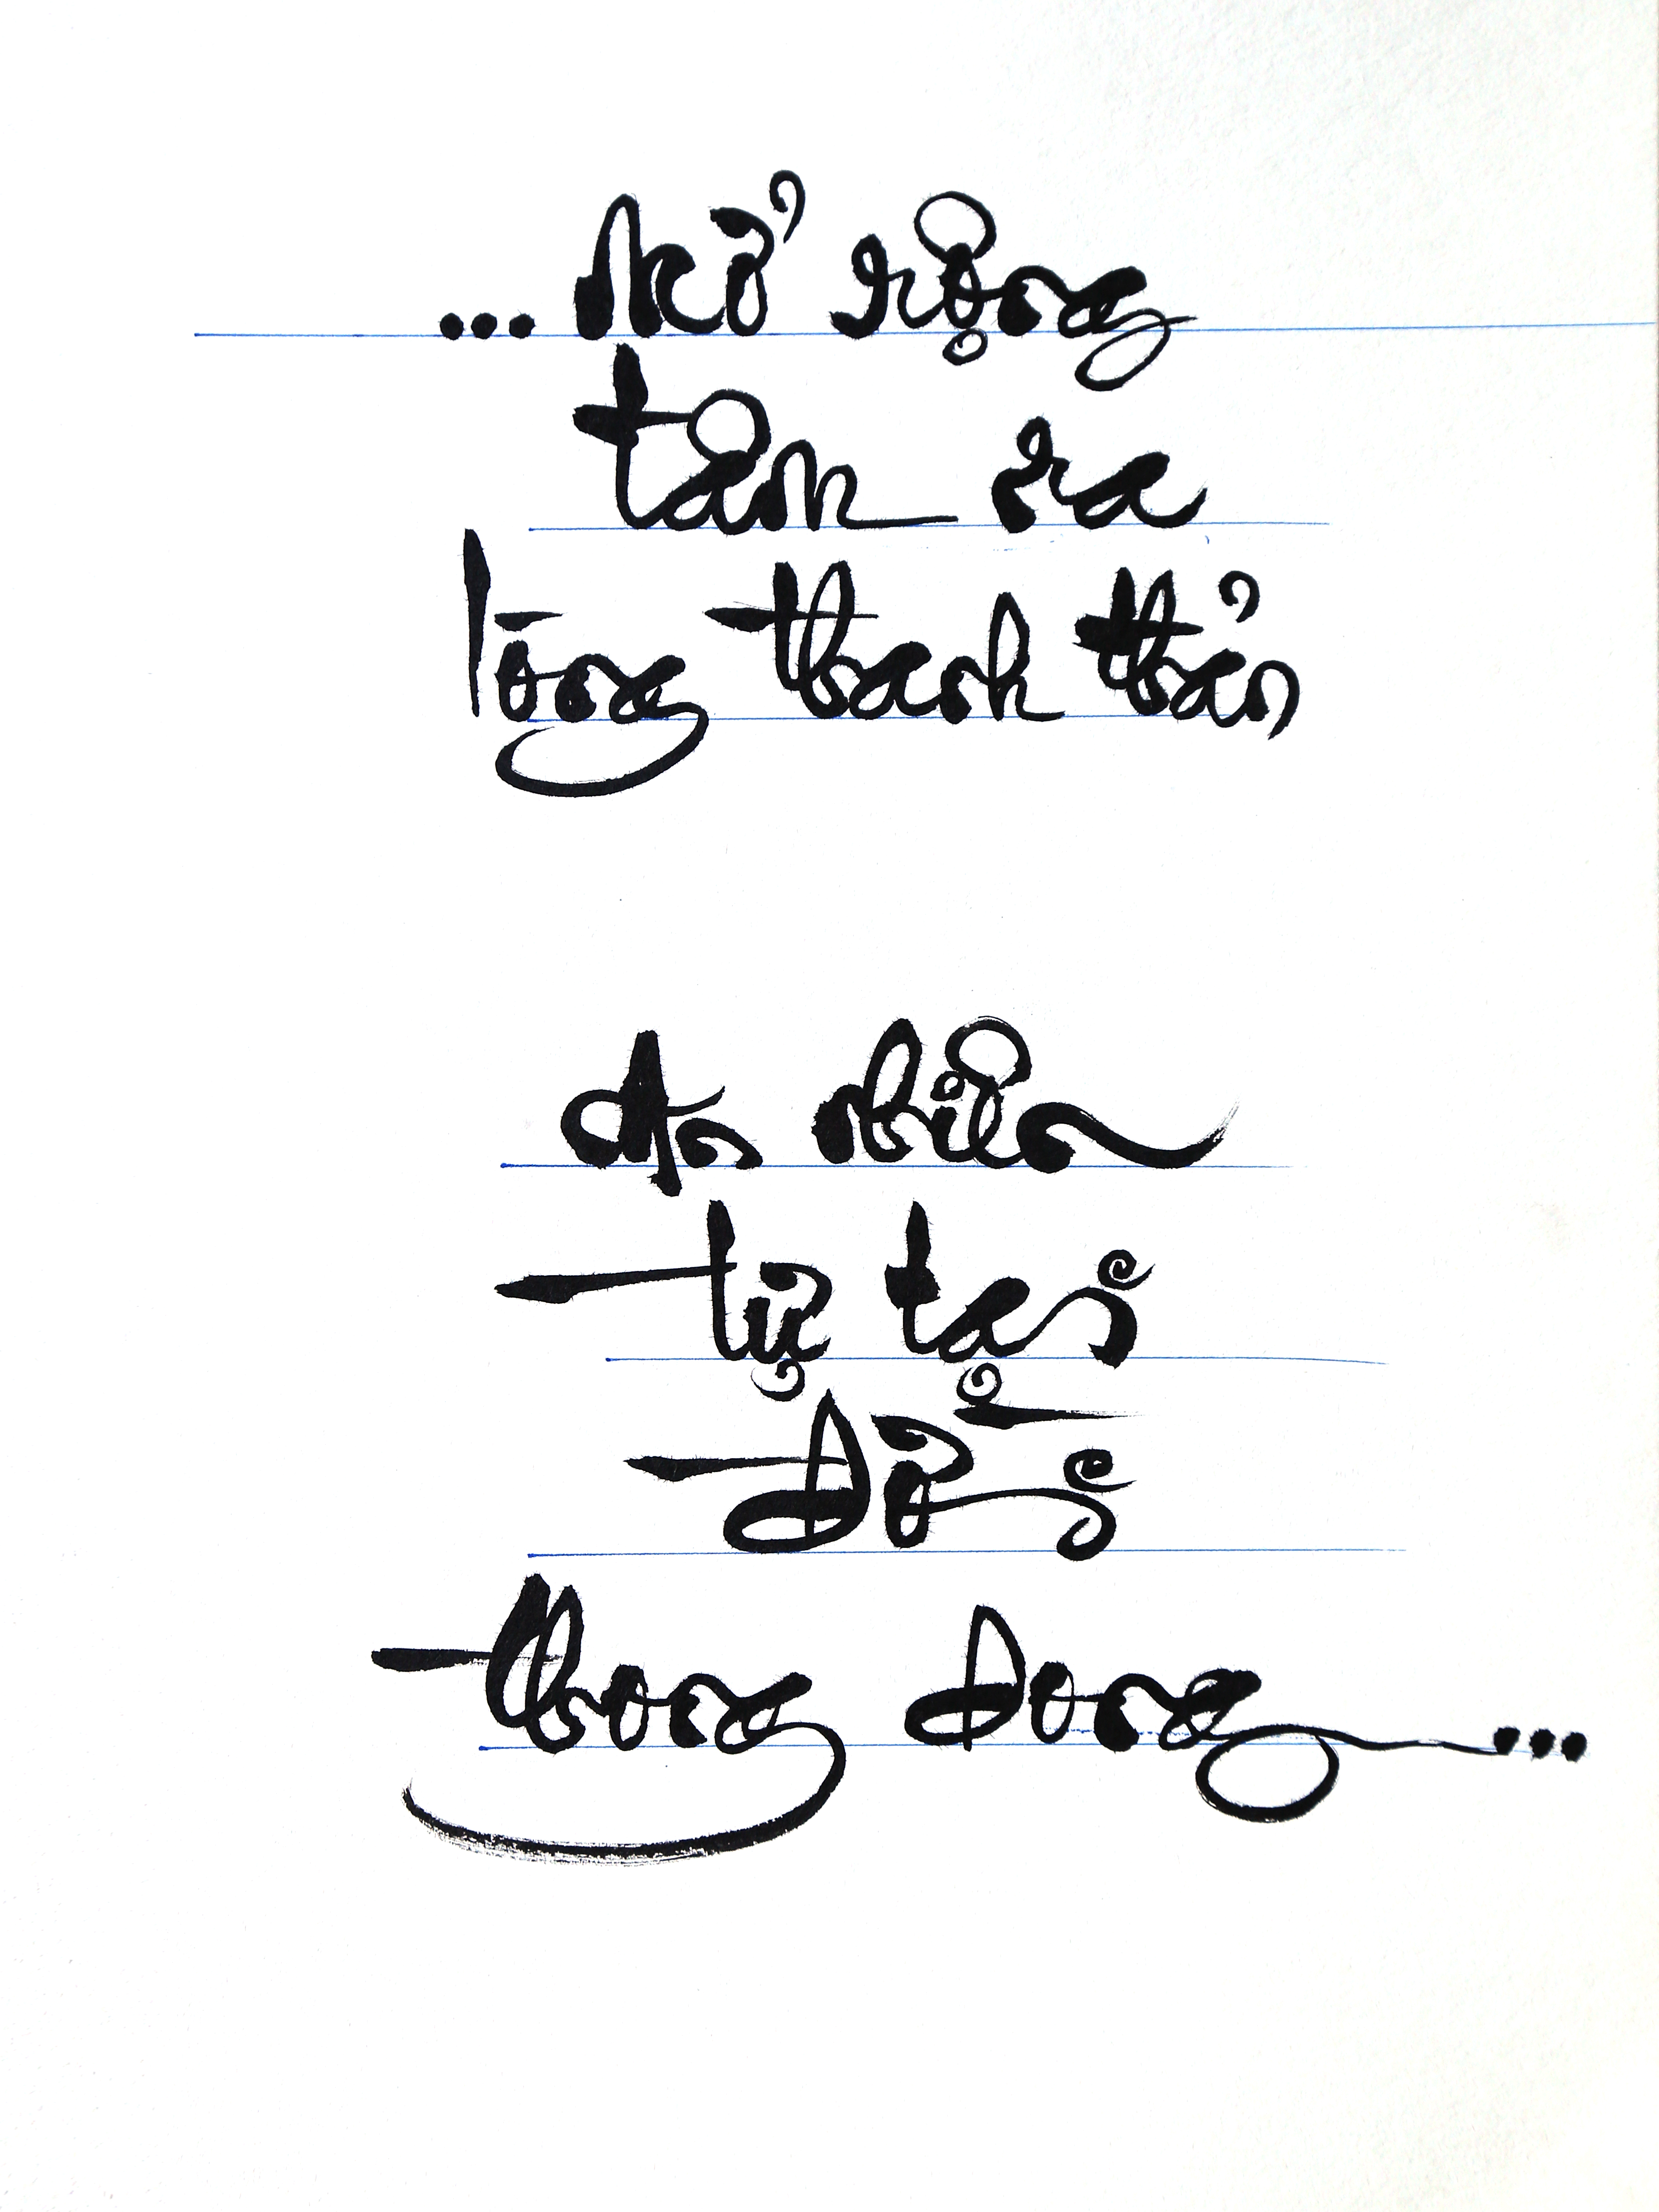 ... mở rộng
tâm ra
lòng thanh thản
An nhiên
tự tại
đời
thong dong ...